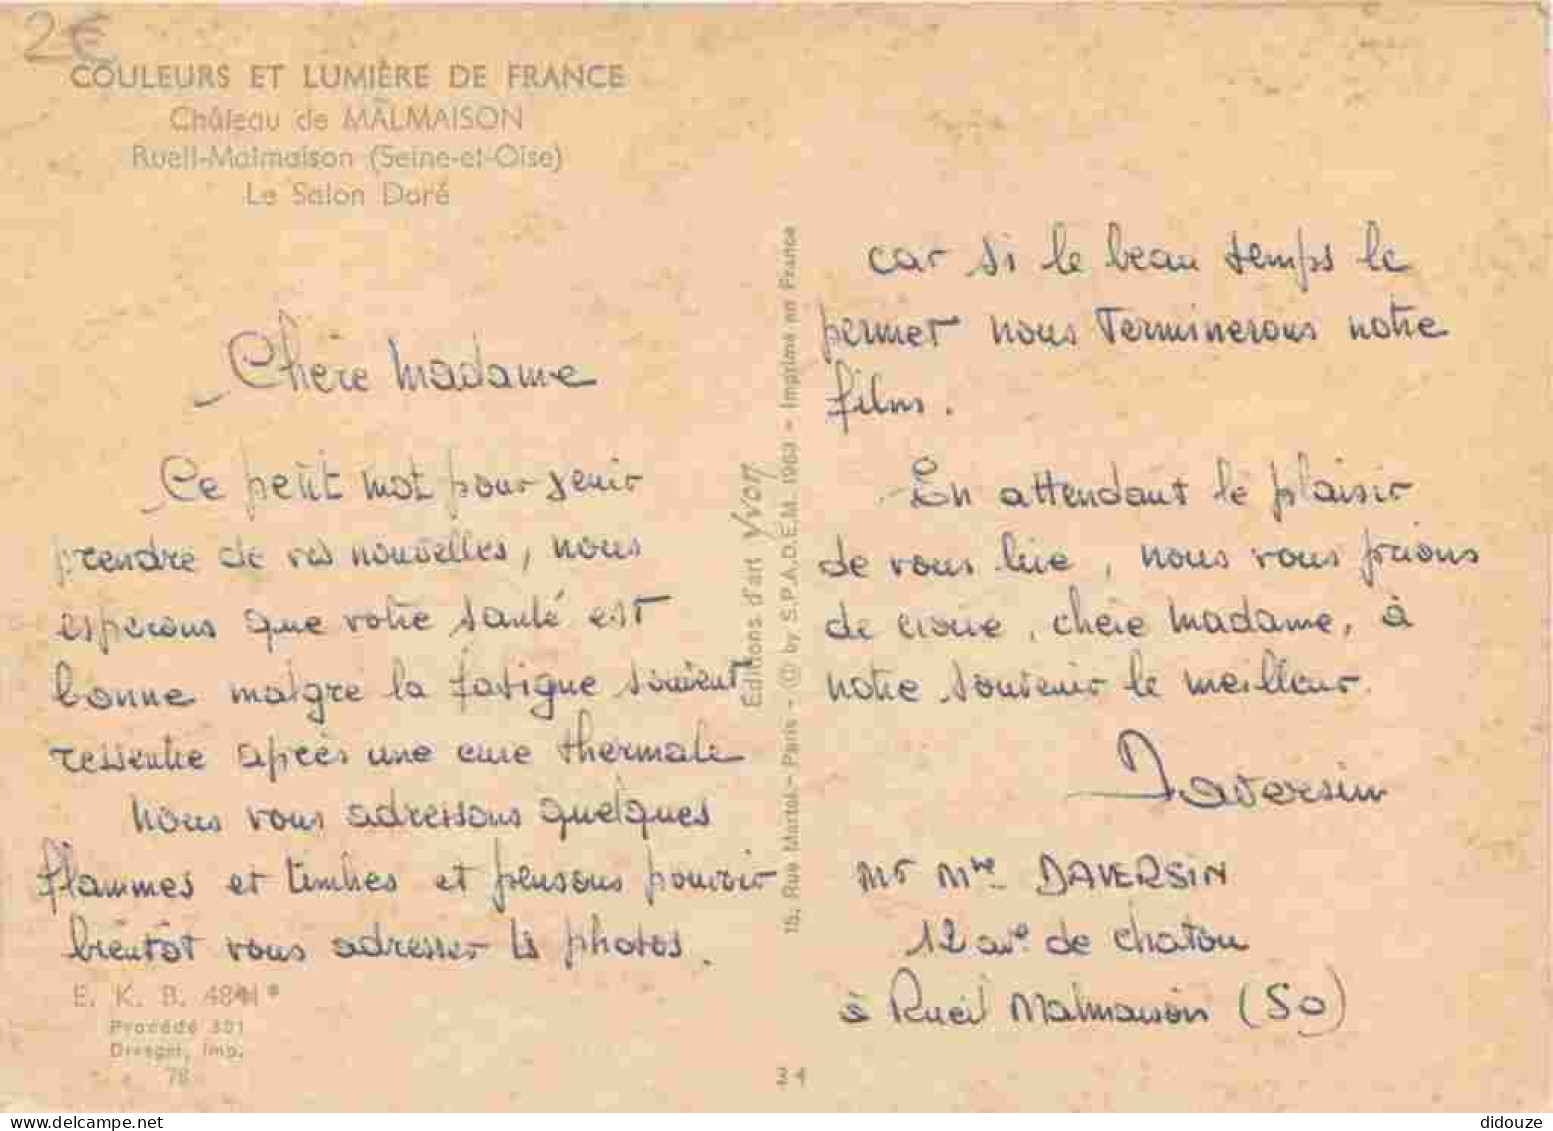 2€
COULEURS ET LUMIÈRE DE FRANCE
Château de MALMAISON
Rueil-Malmaison (Seine-et-Oise)
Le Salon Doré
Chère Madame
Ce petit mot pour venir
prendre de vos nouvelles, nous
esperons que votre santé est
bonne malgre la fatigue souvent
ressentie après une cure thermale
Nous vous adressons quelques
flammes et timbres et pensons pouvoir
bientôt vous adresser les photos.
E. K. B. 4841*
Procédé 301
Draeger, Imp.
78
Editions d'art Yvon
15, Rue Martel - Paris - (C) by S.P.A.D.E.M. 1963 - Imprimé en France
34
car si le beau temps le
permet nous terminerons notre
film.
En attendant le plaisir
de vous lire, nous vous prions
de croire, chère Madame, à
notre souvenir le meilleur.
Daversin
Mr Mme DAVERSIN
12 ave de chatou
à Rueil Malmaison (SO)
didouze